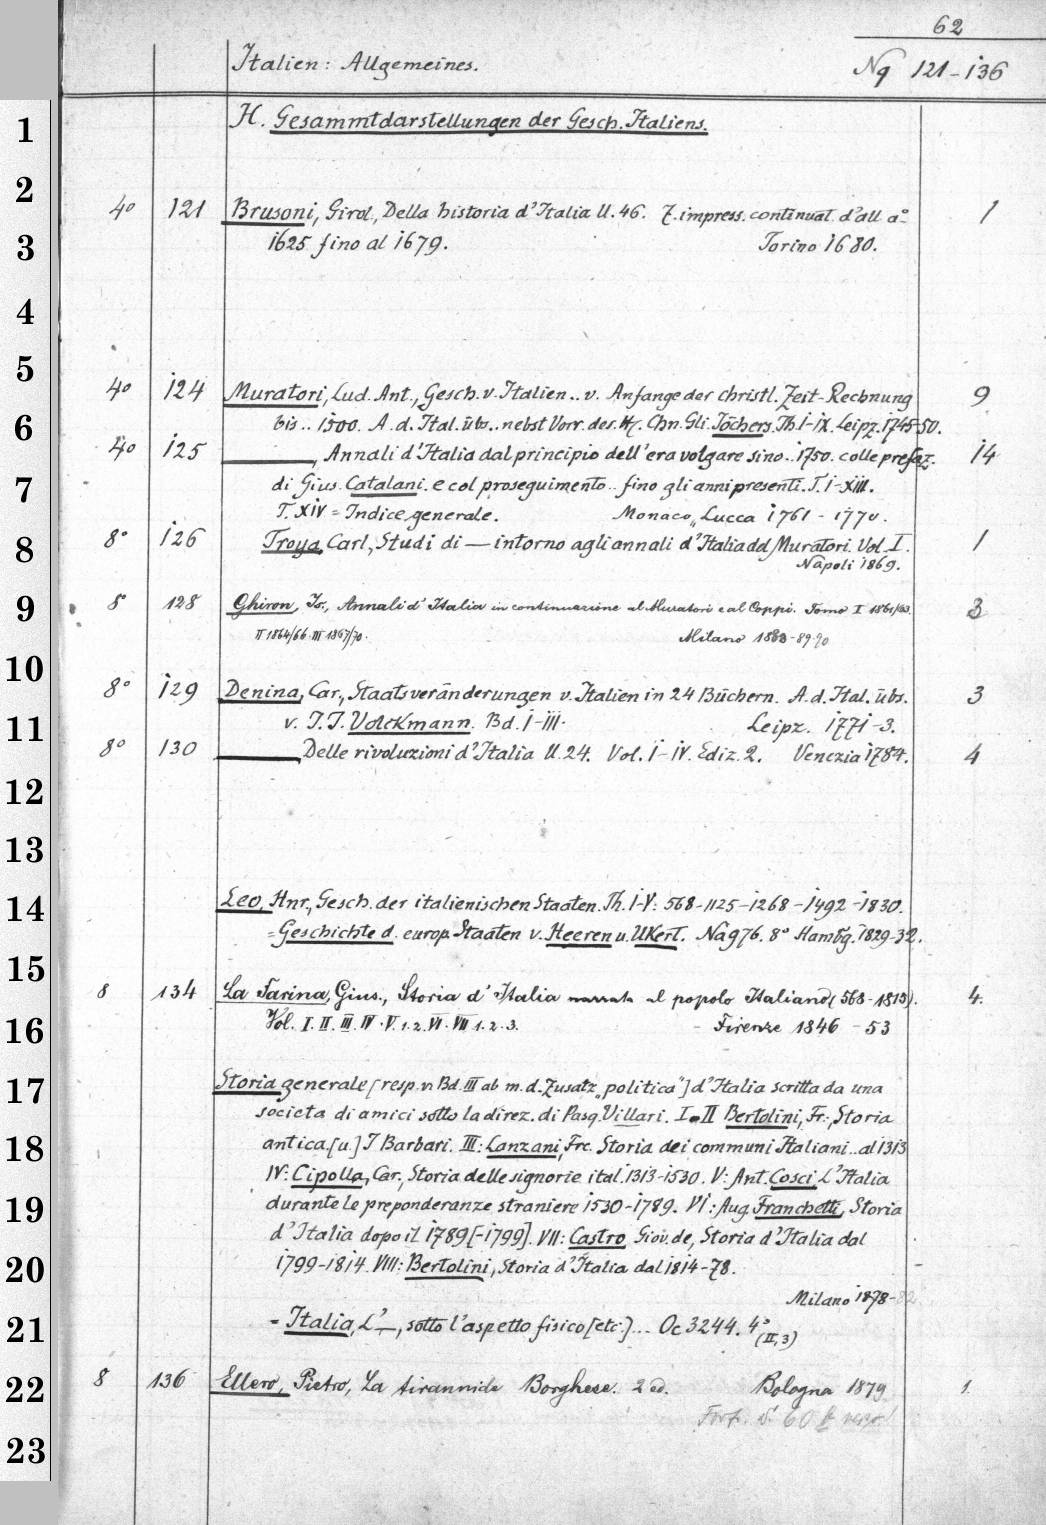 62
Italien: Allgemeines. Nq 121-136
1 H. Gesammtdarstellungen der Gesch. Italiens.
2
4º 121 Brusoni, Girol., Della historia d'Italia ll. 46. 7. impress. continuat. d'all aº 1
3 1625 fino al 1679. Torino 1680.
4
5
4º 124 Muratori, Lud. Ant., Gesch. v. Italien .. v. Anfange der christl. Zeit-Rechnung 9
6 bis .. 1500. A. d. Ital. übs .. nebst Vorr. des. Chn. Gli. Jöchers. Th. I-IX. Leipz. 1745-50.
4º 125 ———, Annali d'Italia dal principio dell' era volgare sino .. 1750. colle prefaz. 14
7 di Gius. Catalani. e col proseguimento .. fino gli anni presenti. T. I-XIII.
T. XIV = Indice generale. Monaco, Lucca 1761 - 1770.
8 8º 126 Troya, Carl., Studi di — intorno agli annali d'Italia dd Muratori. Vol. I. 1
Napoli 1869.
9 8 128 Ghiron, Is., Annali d'Italia in continuazione al Muratori e al Coppi. Tomo I 1861/63. 3
II 1864/66. III 1867/70. Milano 1888-89-90
10
8º 129 Denina, Car., Staatsveränderungen v. Italien in 24 Büchern. A. d. Ital. übs. 3
11 v. J. J. Volckmann. Bd. I-III. Leipz. 1771-3.
8º 130 ——— Delle rivoluzioni d'Italia ll. 24. Vol. I-IV. Ediz. 2. Venezia 1784. 4
12
13
14 Leo, Hnr., Gesch. der italienischen Staaten. Th. I-V: 568-1125-1268-1492-1830.
= Geschichte d. europ. Staaten v. Heeren u. Ukert. Na 976. 8º Hambg. 1829-32.
15
8 134 La Farina, Gius., Storia d'Italia narrata al popolo Italiano (568-1815). 4.
16 Vol. I. II. III. IV. V. 1. 2. VI. VII 1. 2. 3. - Firenze 1846 - 53
17 Storia generale [resp. v. Bd. III ab m. d. Zusatz „politica"] d'Italia scritta da una
societa di amici sotto la direz. di Pasq. Villari. I-II Bertolini, Fr., Storia
18 antica [u.] I Barbari. III: Lanzani, Frc. Storia dei communi Italiani .. al 1313
IV: Cipolla, Car., Storia delle signorie ital. 1313-1530. V: Ant. Cosci L'Italia
19 durante le preponderanze straniere 1530-1789. VI: Aug. Franchetti, Storia
d'Italia dopo il 1789 [-1799]. VII: Castro Giov. de, Storia d'Italia dal
20 1799-1814. VIII: Bertolini, Storia d'Italia dal 1814-78.
Milano 1878-82
21 = Italia, L'—, sotto l'aspetto fisico [etc.] ... Oc 3244. 4º
(II, 3)
22 8 136 Ellero, Pietro, La tirannide Borghese. 2 ed. Bologna 1879 1.
Forts. S. 60 verso!
23